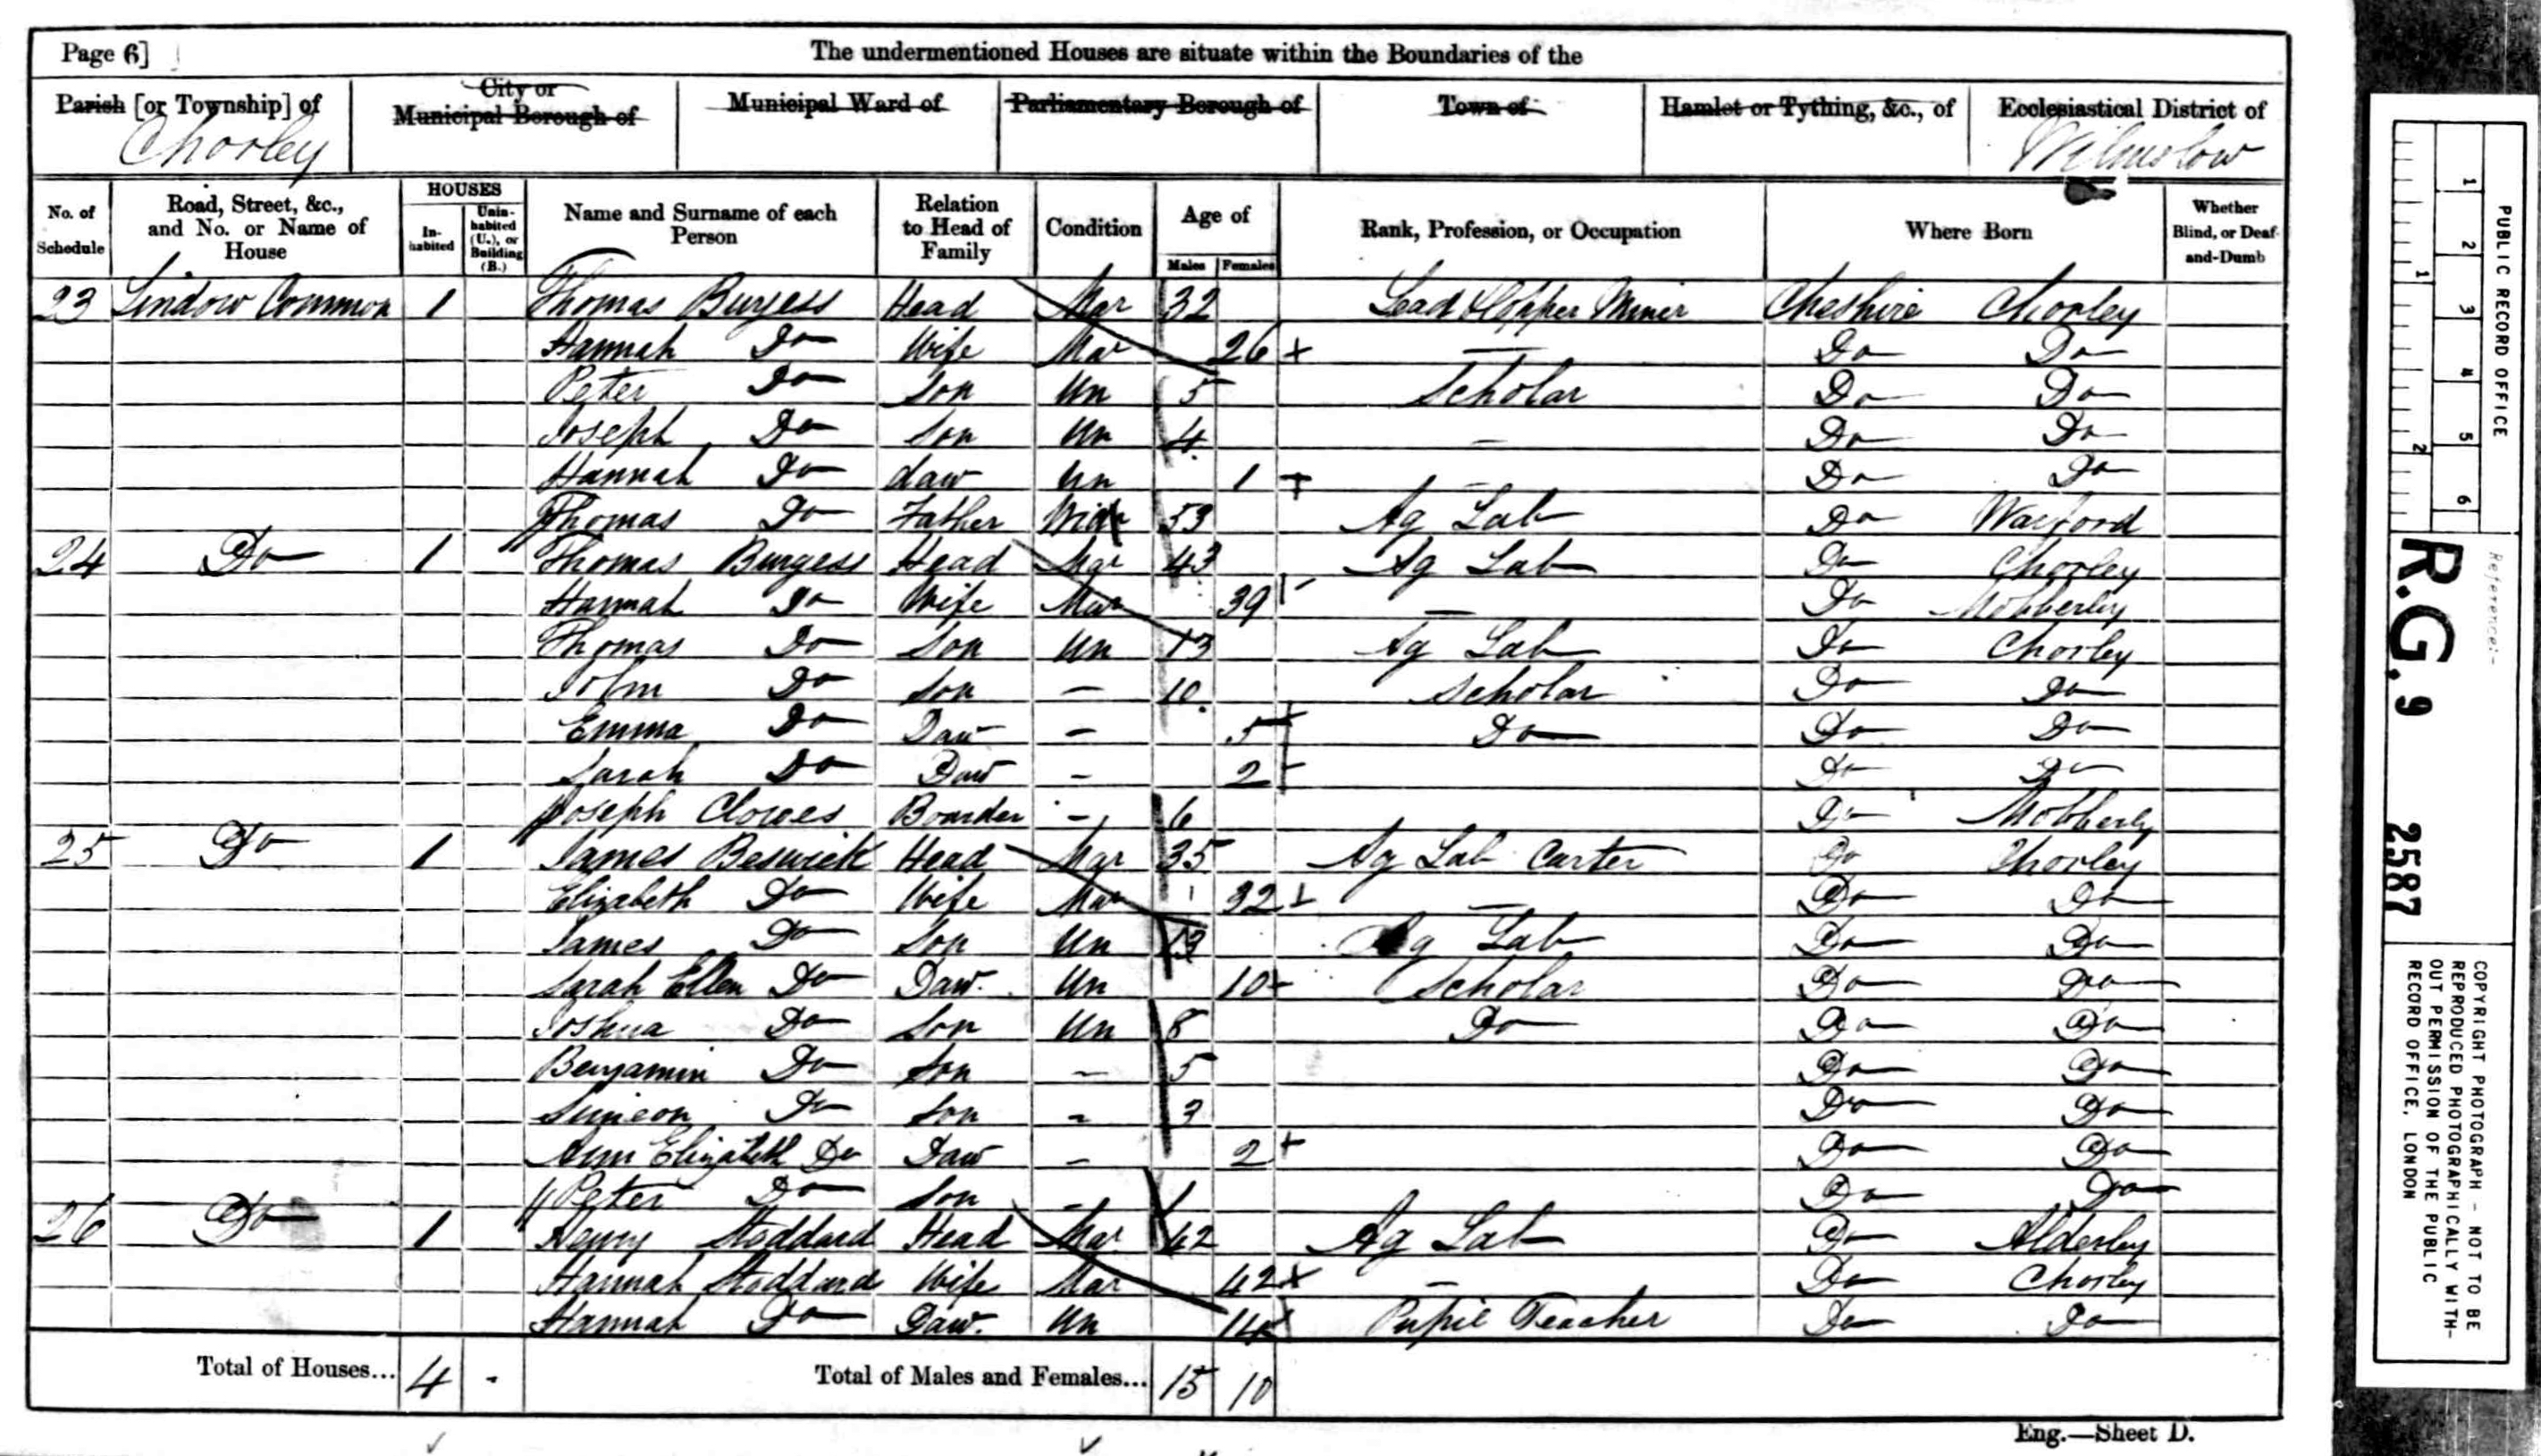 Page 6]
The undermentioned Houses are situate within the Boundaries of the
Parish [or Township] of
Chorley
City or
Municipal Borough of
Municipal Ward of
Parliamentary Borough of
Town of
Hamlet or Tything, &c., of
Ecclesiastical District of
Wilmslow
No. of Schedule
Road, Street, &c., and No. or Name of House
HOUSES
In-habited
Unin-habited (U.), or Building (B.)
Name and Surname of each Person
Relation to Head of Family
Condition
Age of
Males
Females
Rank, Profession, or Occupation
Where Born
Whether Blind, or Deaf-and-Dumb
23 Lindow Common 1 Thomas Burgess Head Mar 32 Lead & Copper Miner Cheshire Chorley
Hannah Do Wife Mar 26 — Do Do
Peter Do Son Un 5 Scholar Do Do
Joseph Do Son Un 4 — Do Do
Hannah Do daw Un 1 - Do Do
Thomas Do Father Widr 53 Ag Lab Do Warford
24 Do 1 Thomas Burgess Head Mar 43 Ag Lab Do Chorley
Hannah Do Wife Mar 39 — Do Mobberley
Thomas Do Son Un 13 Ag Lab Do Chorley
John Do Son — 10 Scholar Do Do
Emma Do Daw — 5 Do Do Do
Sarah Do Daw — 2 Do Do
Joseph Clowes Boarder — 6 Do Mobberly
25 Do 1 James Beswick Head Mar 35 Ag Lab Carter Do Chorley
Elizabeth Do Wife Mar 32 — Do Do
James Do Son Un 13 Ag Lab Do Do
Sarah Ellen Do Daw. Un 10 Scholar Do Do
Joshua Do Son Un 8 Do Do Do
Benjamin Do Son — 5 Do Do
Simeon Do Son — 3 Do Do
Ann Elizabeth Do Daw — 2 Do Do
Peter Do Son — 1 Do Do
26 Do 1 Henry Stoddard Head Mar 42 Ag Lab Do Alderley
Hannah Stoddard Wife Mar 42 — Do Chorley
Hannah Do Daw. Un 14 Pupil Teacher Do Do
Total of Houses... 4 - Total of Males and Females... 15 10
Eng.—Sheet D.
1 2 3 4 5 6
1 2
PUBLIC RECORD OFFICE
Reference:-
R.G. 9 2587
COPYRIGHT PHOTOGRAPH - NOT TO BE
REPRODUCED PHOTOGRAPHICALLY WITH-
OUT PERMISSION OF THE PUBLIC
RECORD OFFICE, LONDON